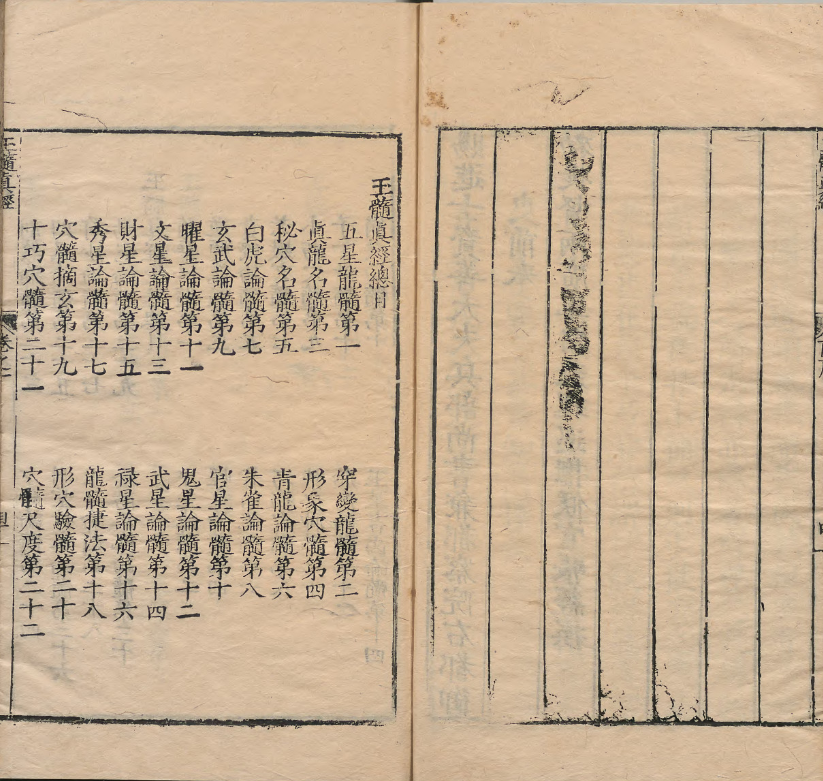 玉髓真經總目
五星龍髓第一
穿變龍髓第二
眞龍名髓第三
形象穴髓第四
秘穴名髓第五
青龍論髓第六
白虎論髓第七
朱雀論髓第八
玄武論髓第九
官星論髓第十
曜星論髓第十一
鬼星論髓第十二
文星論髓第十三
武星論髓第十四
財星論髓第十五
祿星論髓第十六
秀星論髓第十七
龍髓捷法第十八
穴髓摘玄第十九
形穴驗髓第二十
十巧穴髓第二十一
穴髓尺度第二十二
玉髓眞經
卷之一